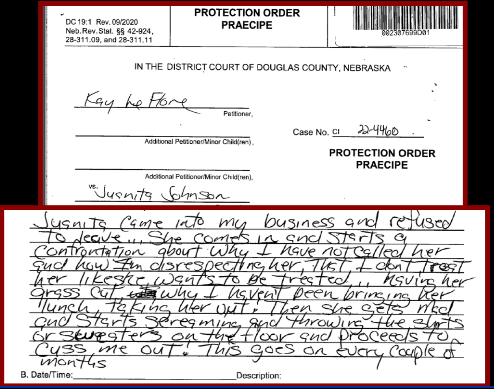 DC 19:1 Rev. 09/2020
Neb.Rev.Stat. §§ 42-924,
28-311.09, and 28-311.11
PROTECTION ORDER
PRAECIPE
002307699D01
IN THE DISTRICT COURT OF DOUGLAS COUNTY, NEBRASKA
Kay Le Flore
Petitioner,
Additional Petitioner/Minor Child(ren),
Case No. CI 22-4460
Additional Petitioner/Minor Child(ren),
PROTECTION ORDER
PRAECIPE
vs.
Juanita Johnson
Juanita came into my business and refused
to leave... She comes in and starts a
confrontation about why I have not called her
and how I'm disrespecting her, that, I don't treat
her like she wants to be treated... having her
grass cut why I havent been bringing her
lunch, taking her out. Then she gets mad
and starts screaming and throwing the shirts
or sweaters on the floor and proceeds to
cuss me out! This goes on every couple of
months
B. Date/Time: Description: